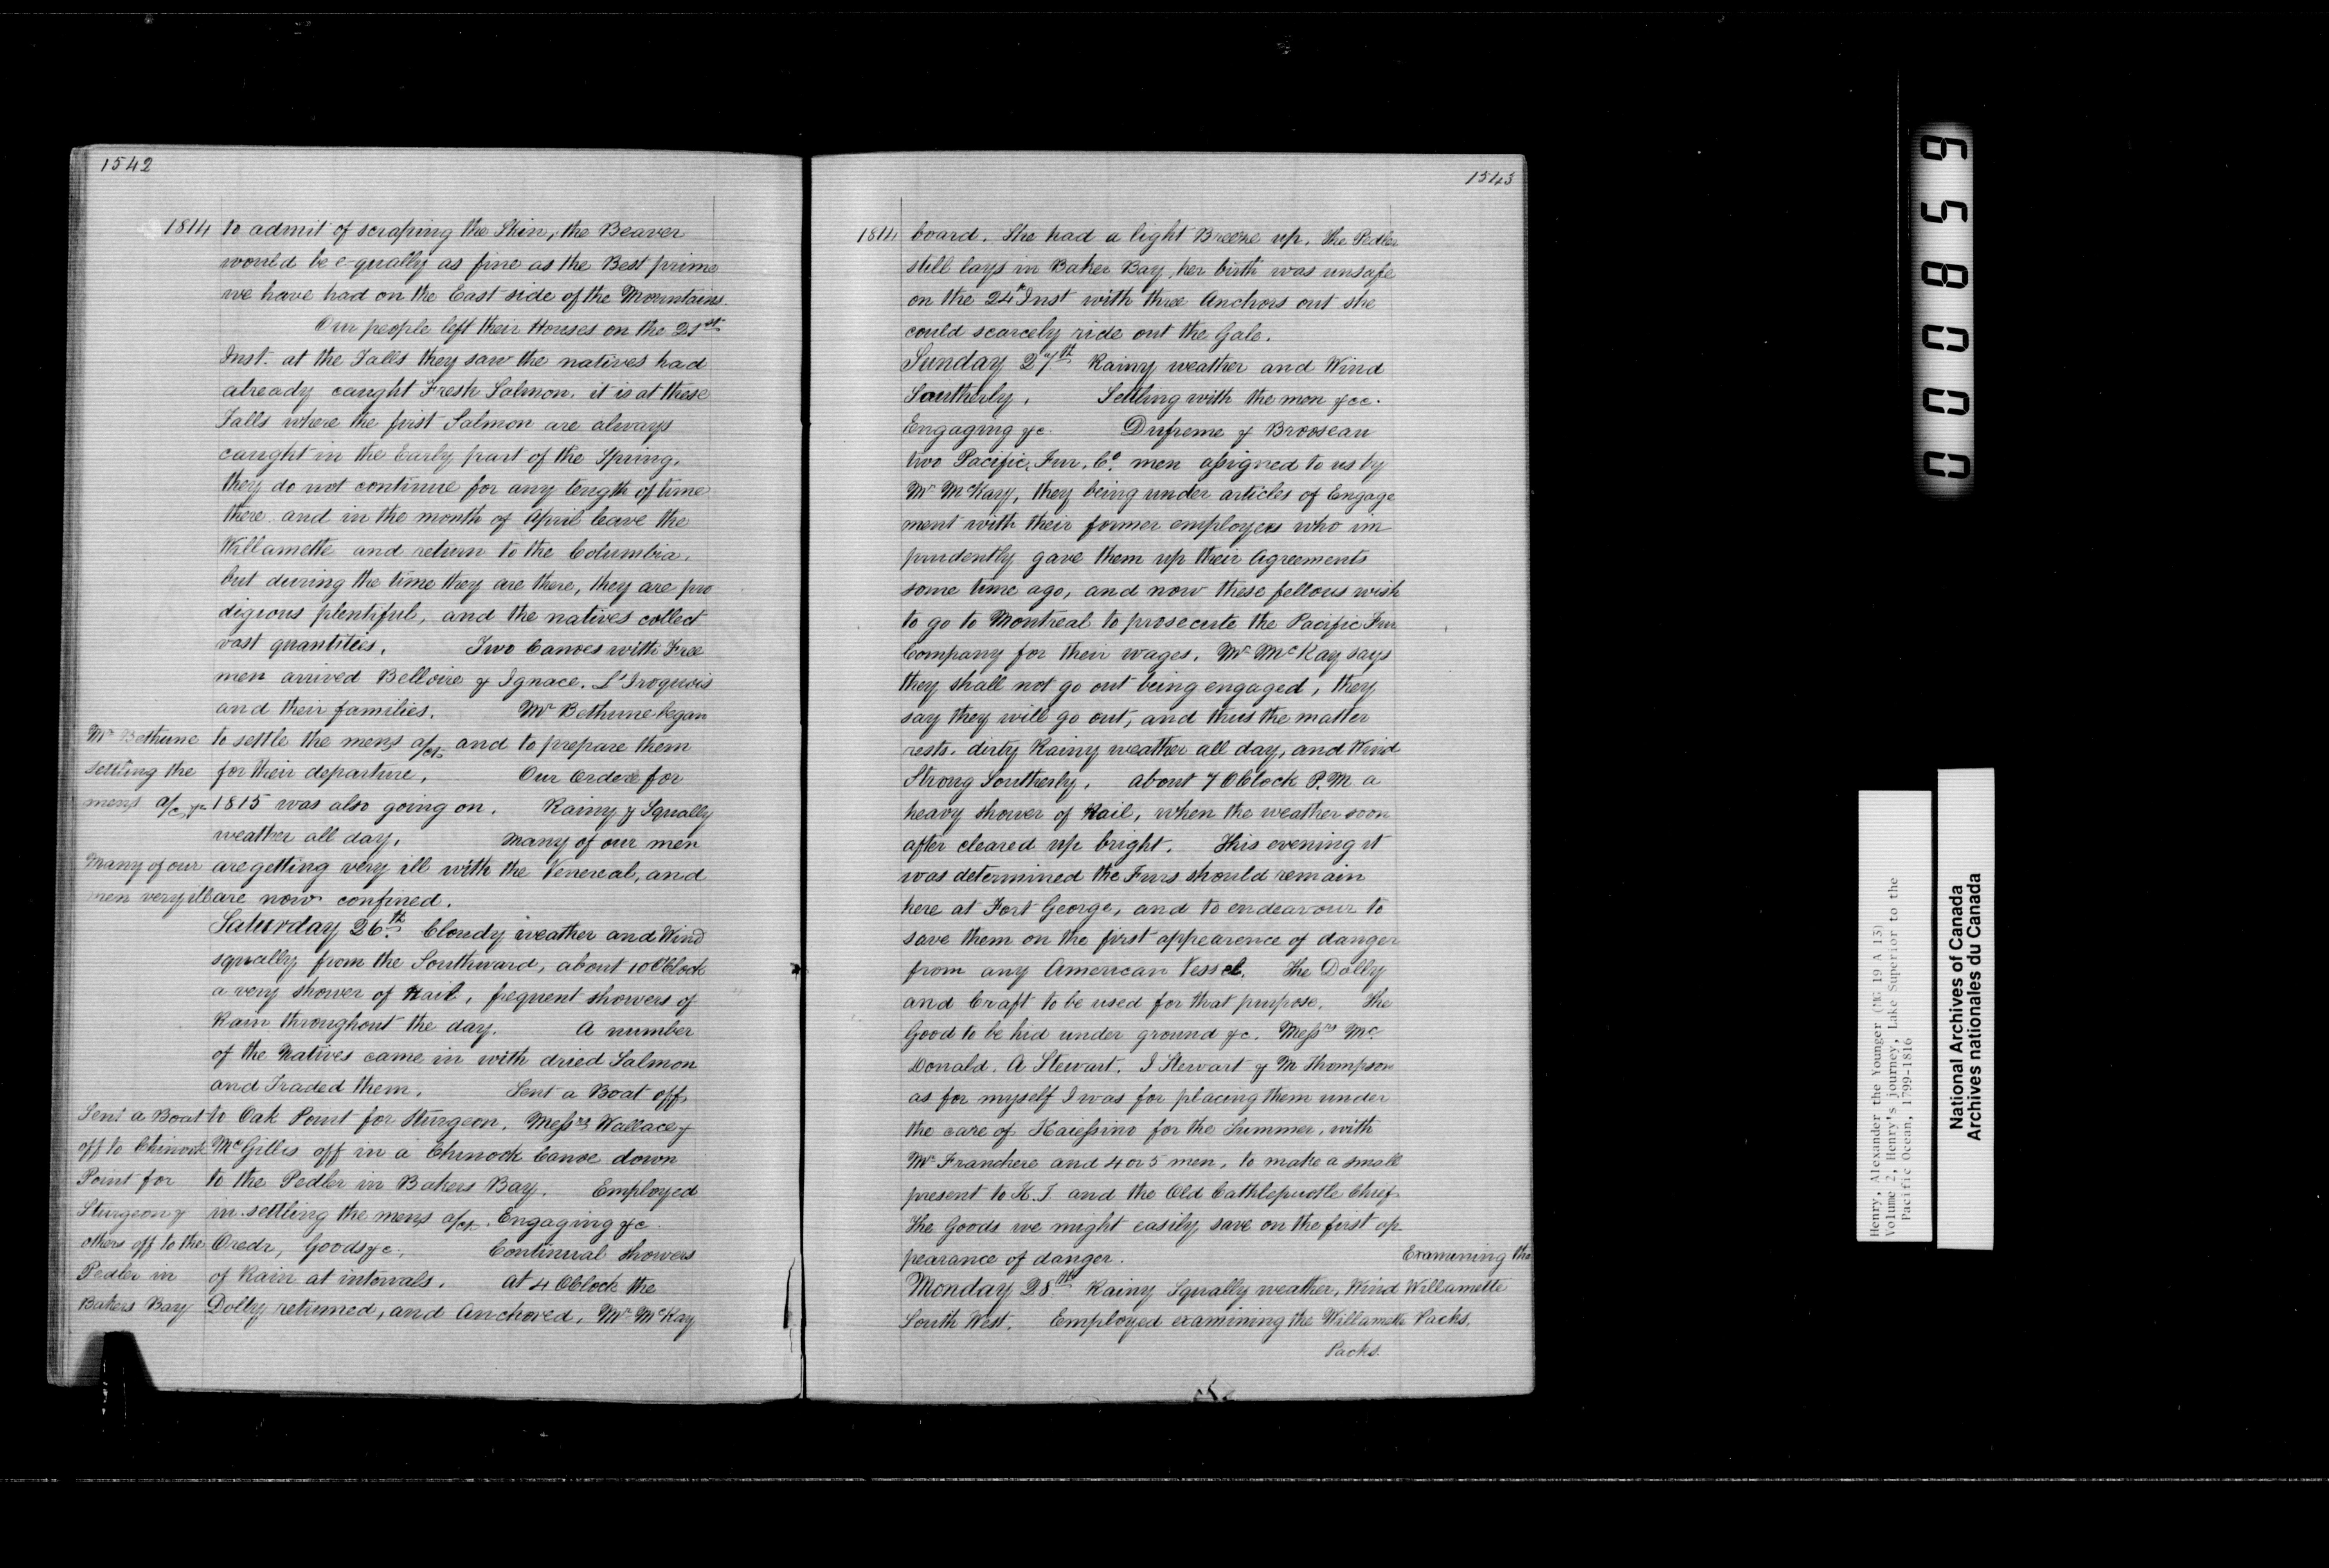 1542
1814 to admit of scraping the Skin, the Beaver
would be e-qually as fine as the Best prime
we have had on the East side of the Mountains.
Our people left their Houses on the 21st
Inst. at the Falls they saw the natives had
already caught Fresh Salmon. it is at these
Falls where the first Salmon are always
caught in the Early part of the Spring.
they do not continue for any length of time
there. and in the month of April leave the
Willamette and return to the Columbia.
but during the time they are there, they are pro
digious plentiful, and the natives collect
vast quantities. Two Canoes with Free
men arrived Belloire & Ignace. L'Iroquois
and their families. Mr Bethune began
to settle the mens a/cts and to prepare them
for their departure. Our Orders for
1815 was also going on. Rainy & Squally
weather all day. Many of our men
are getting very ill with the Venereal, and
are now confined.
Saturday 26th. Cloudy weather and Wind
squally from the Southward, about 10 OClock
a very shower of Hail, frequent showers of
Rain throughout the day. A number
of the Natives came in with dried Salmon
and Traded them. Sent a Boat off
to Oak Point for Sturgeon. Messrs Wallace &
McGillis off in a Chinook Canoe down
to the Pedler in Bakers Bay. Employed
in settling the mens a/cts. Engaging &c.
Oredr, Goods &c. Continual showers
of Rain at intervals. At 4 OClock the
Dolly returned, and Anchored, Mr McKay
Mr Bethune
settling the
mens a/c &c
Many of our
men very ill
Sent a Boat
off to Chinook
Point for
Sturgeon &
others off to the
Pedler in
Bakers Bay
1543
1814 board. She had a light Breeze up. The Pedler
still lays in Baker Bay, her birth was unsafe
on the 24th Inst with three Anchors out she
could scarcely ride out the Gale.
Sunday 27th Rainy weather and Wind
Southerly. Settling with the men &cc.
Engaging &c. Dufreme & Brooseau
two Pacific. Fur. Co. men assigned to us by
Mr McKay, they being under articles of Engage
ment with their former employers who im
prudently gave them up their Agreements
some time ago, and now these fellows wish
to go to Montreal to prosecute the Pacific Fur
Company for their wages. Mr McKay says
they shall not go out being engaged, they
say they will go out, and thus the matter
rests. dirty Rainy weather all day, and Wind
Strong Southerly. About 7 OClock P.M. a
heavy shower of Hail, when the weather soon
after cleared up bright. This evening it
was determined the Furs should remain
here at Fort George, and to endeavour to
save them on the first appearence of danger
from any American Vessel. The Dolly
and Craft to be used for that purpose. The
Good to be hid under ground &c. Messrs Mc
Donald. A Stewart. I Stewart & M Thompson
as for myself I was for placing them under
the care of Kaiessino for the Summer, with
Mr Franchere and 4 or 5 men, to make a small
present to K. I. and the Old Cathlepuotle Chief.
The Goods we might easily save on the first ap
pearance of danger.
Monday 28th Rainy Squally weather, Wind
South West. Employed examining the Willamette
Packs.
Examining the
Willamette
Packs.
000859
Henry, Alexander the Younger (MG 19 A 13)
Volume 2, Henry's journey, Lake Superior to the
Pacific Ocean, 1799-1816
National Archives of Canada
Archives nationales du Canada